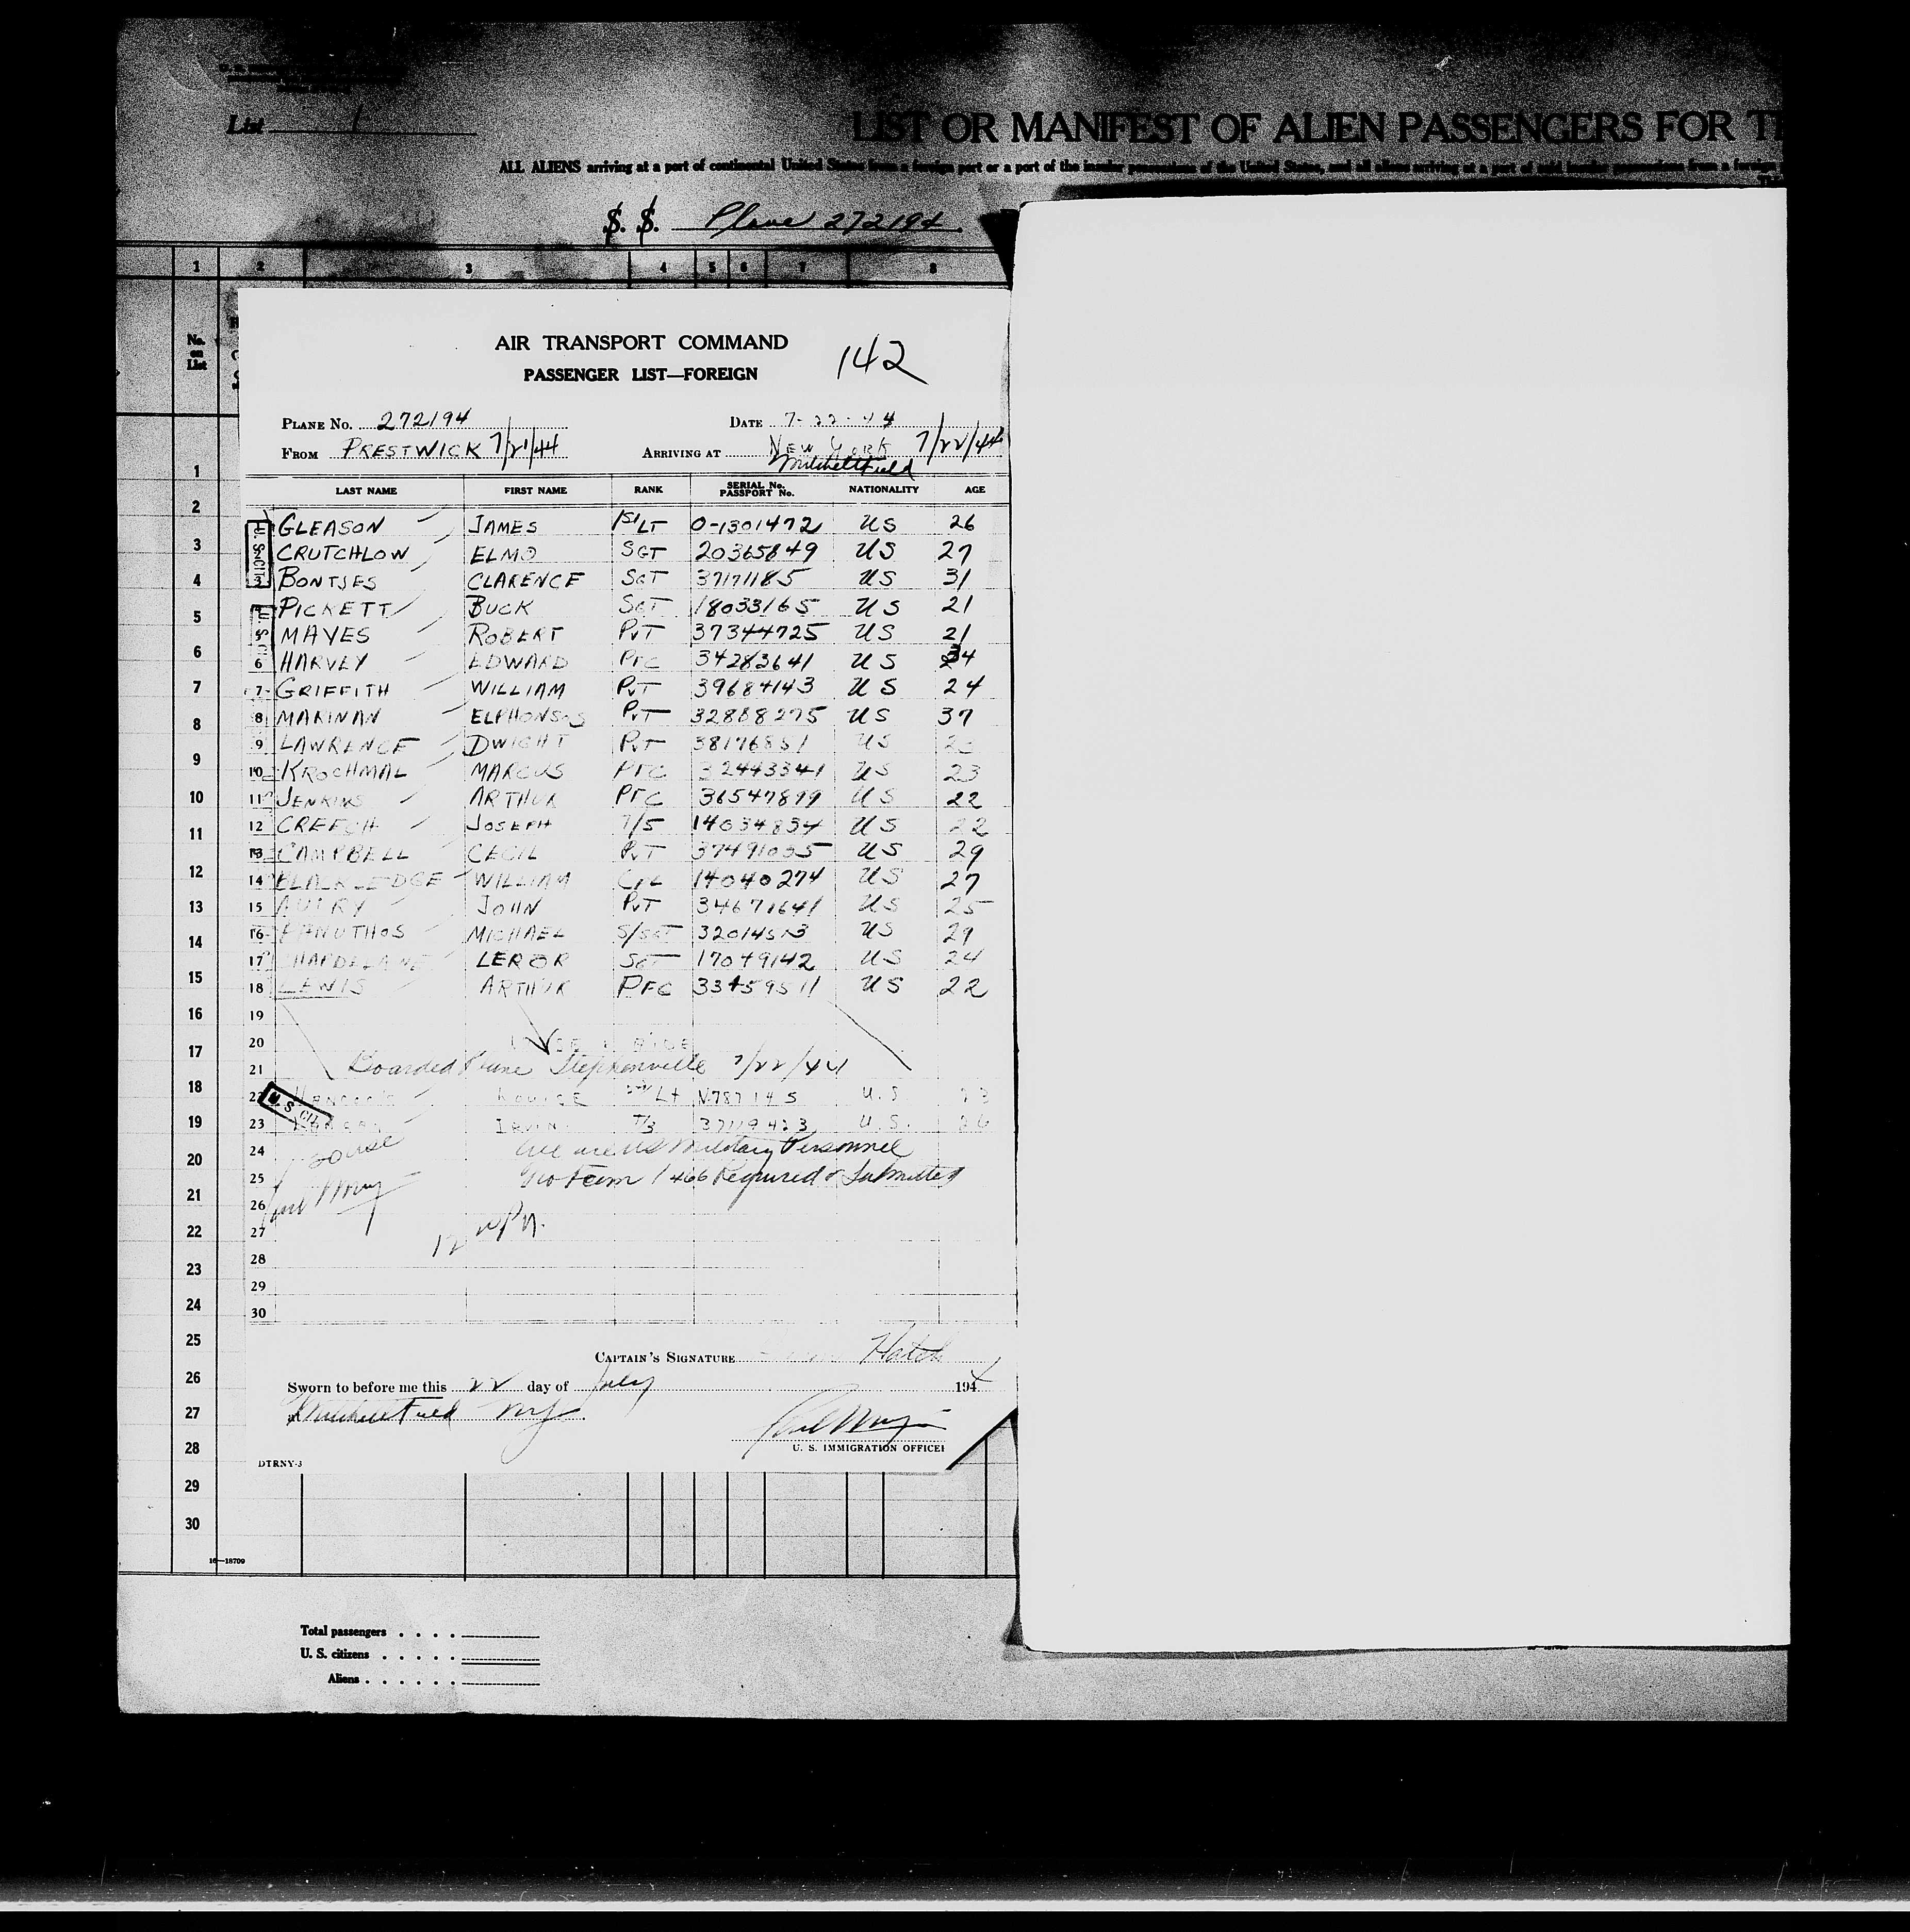 List 1
LIST OR MANIFEST OF ALIEN PASSENGERS FOR
ALL ALIENS arriving at a port of continental United States from a foreign port or a port of the insular possessions of the United States, and all aliens arriving at a port of said insular possessions from a foreign
S. S. Plane 272194
1 2 3 4 5 6 7 8
No. on List
AIR TRANSPORT COMMAND
142
PASSENGER LIST—FOREIGN
PLANE No. 272194 DATE 7-22-44
FROM PRESTWICK 7/21/44 ARRIVING AT NEW YORK 7/22/44
Mitchell Field
LAST NAME FIRST NAME RANK SERIAL No. PASSPORT No. NATIONALITY AGE
GLEASON JAMES 1st LT 0-1301472 US 26
CRUTCHLOW ELMO SGT 20365849 US 27
BONTJES CLARENCE SGT 37171185 US 31
PICKETT BUCK SGT 18033165 US 21
MAYES ROBERT PVT 37344725 US 21
6 HARVEY EDWARD PFC 34283641 US 34
7 GRIFFITH WILLIAM PVT 39684143 US 24
8 MARINAN ELPHONSUS PVT 32888275 US 37
9 LAWRENCE DWIGHT PVT 38176851 US
10 KROCHMAL MARCUS PFC 32443341 US 23
11 JENKINS ARTHUR PFC 36547899 US 22
12 CREECH JOSEPH T/5 14034834 US 22
13 CAMPBELL CECIL PVT 37491035 US 29
14 BLACKLEDGE WILLIAM CPL 14040274 US 27
15 AUTRY JOHN PVT 34671641 US 25
16 MICHAEL S/SGT US 29
17 LEROR SGT 17049142 US 24
18 LEWIS ARTHUR PFC 33459511 US 22
19
20
21 Boarded Plane Stephenville 7/22/44
22 LOUISE 2nd Lt N787145 U.S. 23
U. S. CIT
23 T/3 37119423 U.S. 26
24 All are US Military Personnel
25 No Form 1466 Required or Submitted
26
27
28
29
30
CAPTAIN'S SIGNATURE Hatch
Sworn to before me this 22 day of July 1944
at Mitchell Field NY.
U. S. IMMIGRATION OFFICER
DTRNY-3
1
2
3
4
5
6
7
8
9
10
11
12
13
14
15
16
17
18
19
20
21
22
23
24
25
26
27
28
29
30
16—18709
Total passengers
U. S. citizens
Aliens